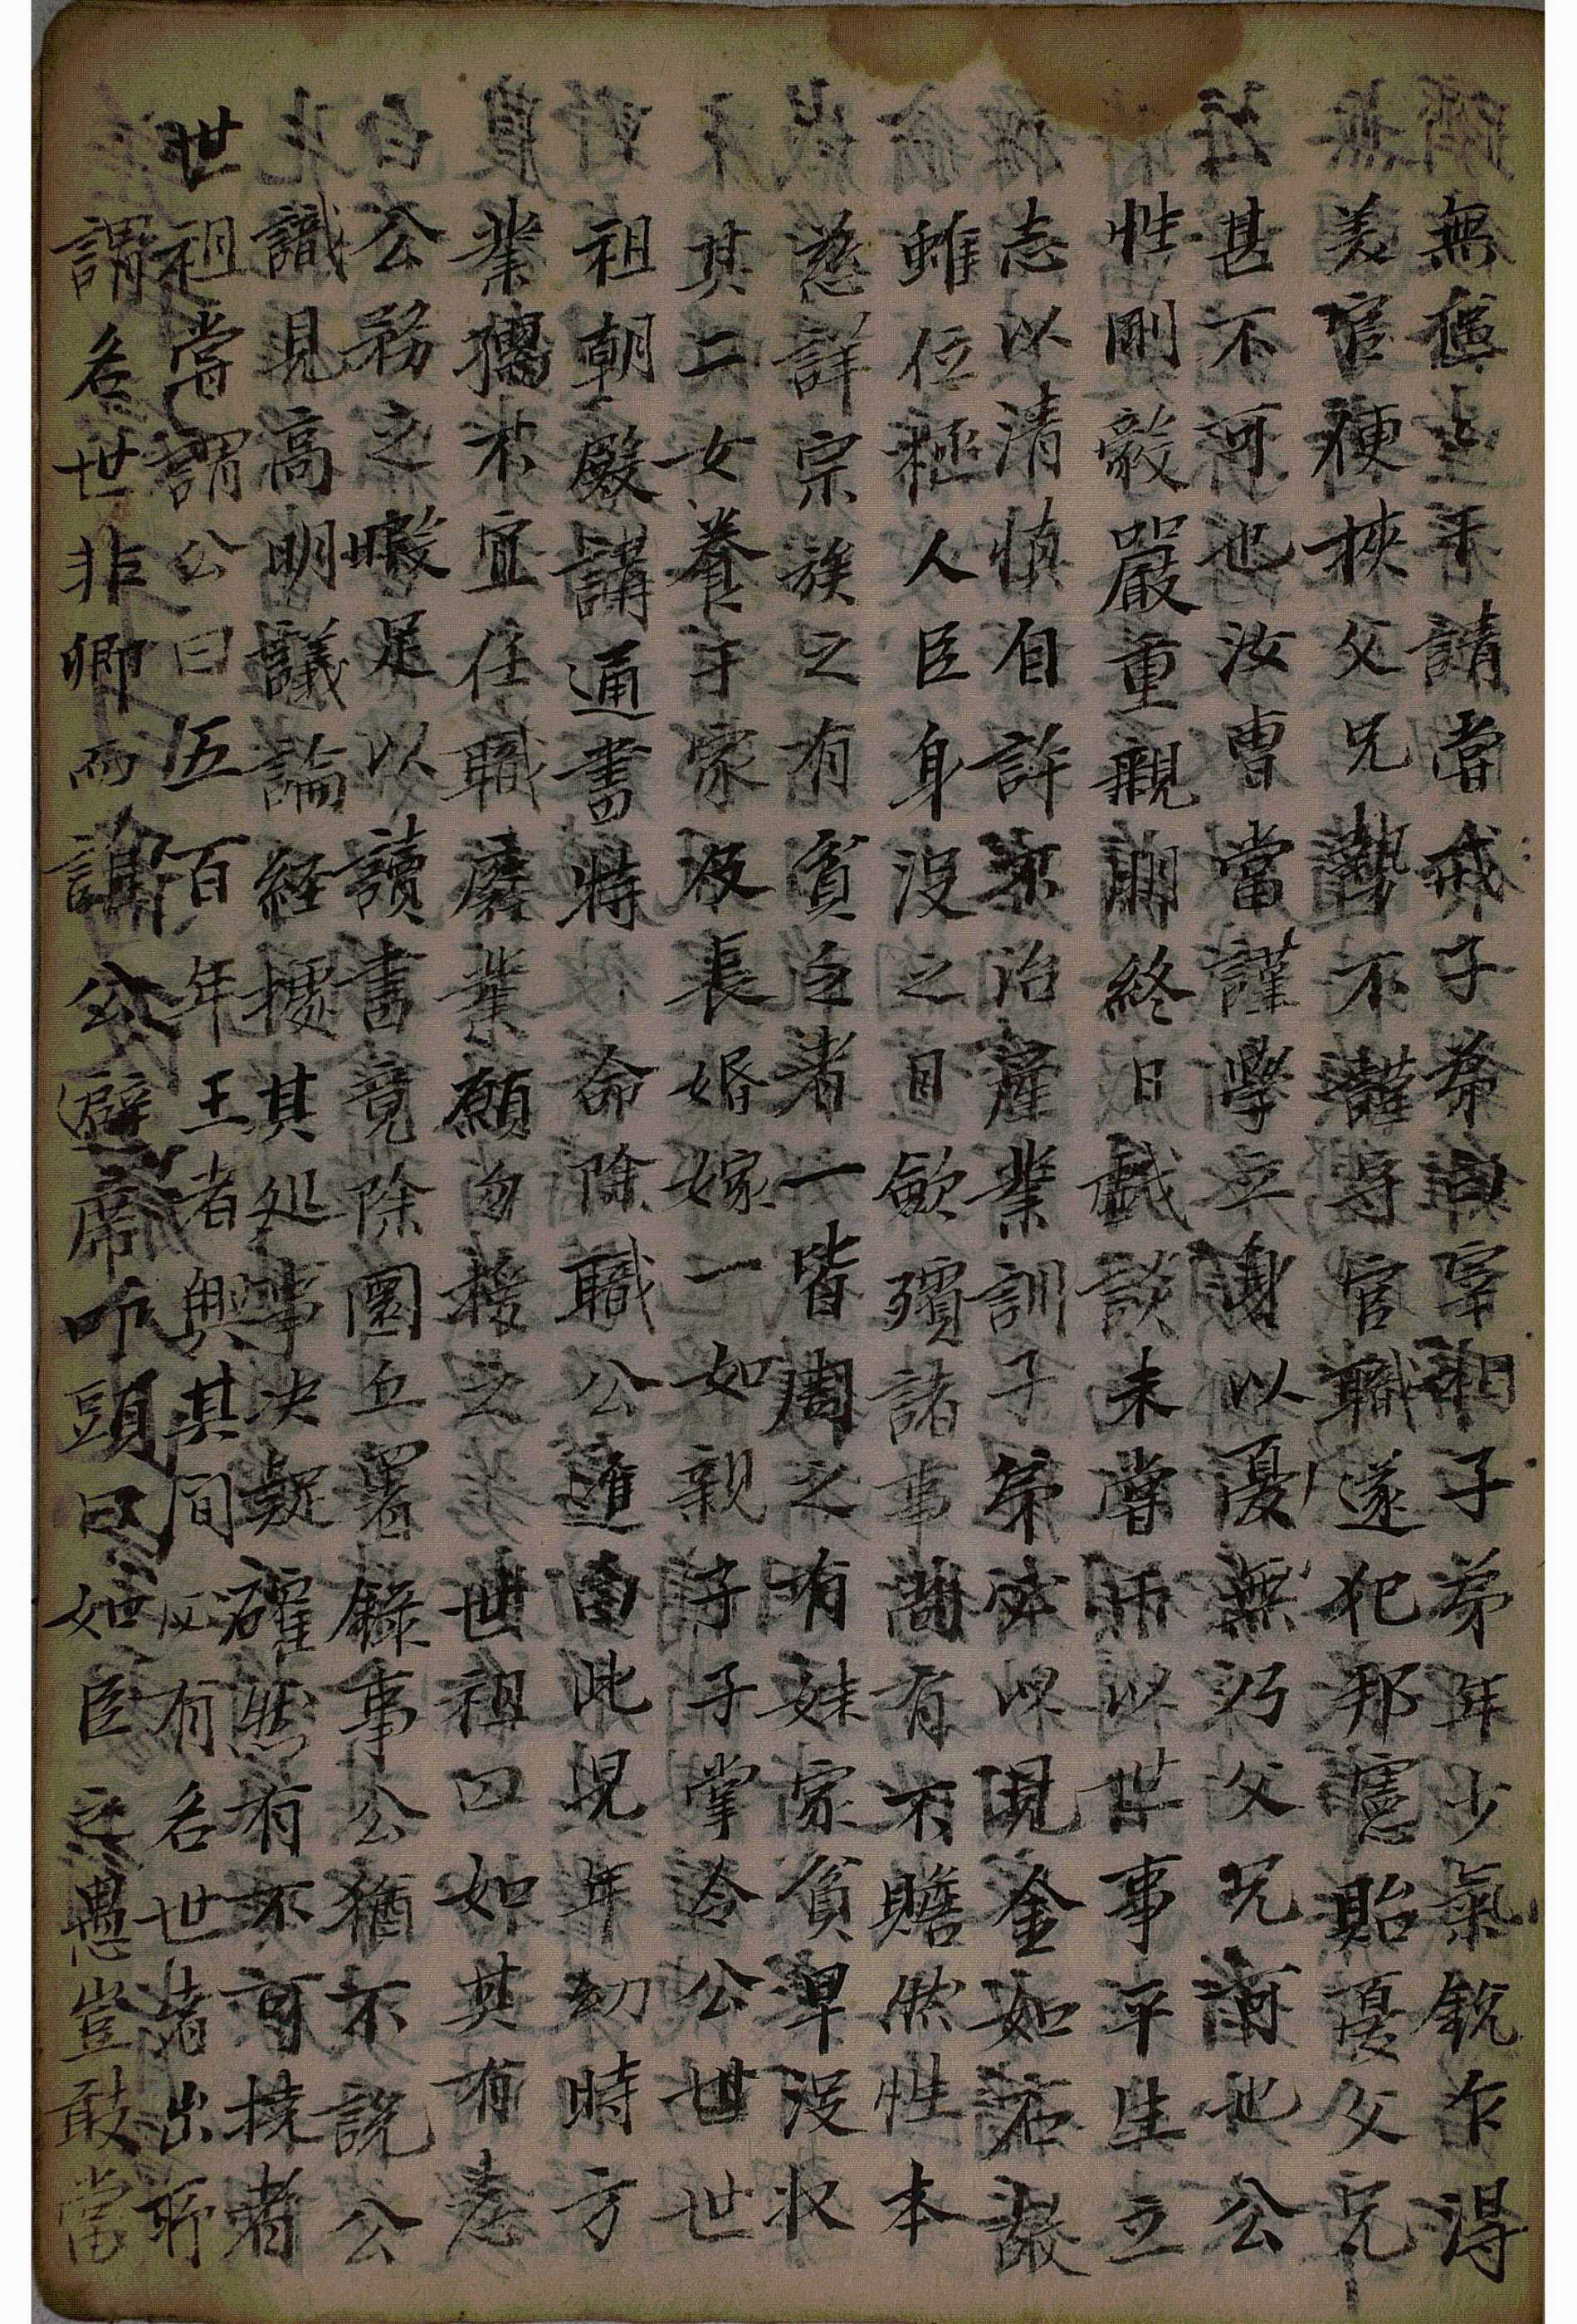 無舊上于請當戒子弟曰宰相子弟年少氣銳乍得
美官便挾父兄勢不謹守官職遂犯邦憲貽憂父兄
甚不可也汝曹當謹學立身以憂無乃父兄可也公
性剛毅嚴重親朋終日戲談未嘗一以世事平生立
志以清慎自許不治產業訓子弟必以視金如石故
雖位極人臣身沒之日歛殯諸事尚有不贍然性本
慈詳宗族之有貧乏者一皆周之有妹家貧早沒收
其二女養于家及長婚嫁一如親子子掌令公世
祖朝殿講通書特命除職公進曰此児年幼時方
業獨未宜任職廢業願勿授之世祖曰如其有志
公務之暇足以讀書竟除園丘署錄事公猶不說公
識見高明議論経據其処事决疑確然有不可撓者
世祖嘗謂公曰五百年王者興其間必有名世者出所
謂名世非卿而誰公避席叩頭曰如臣之愚豈敢當